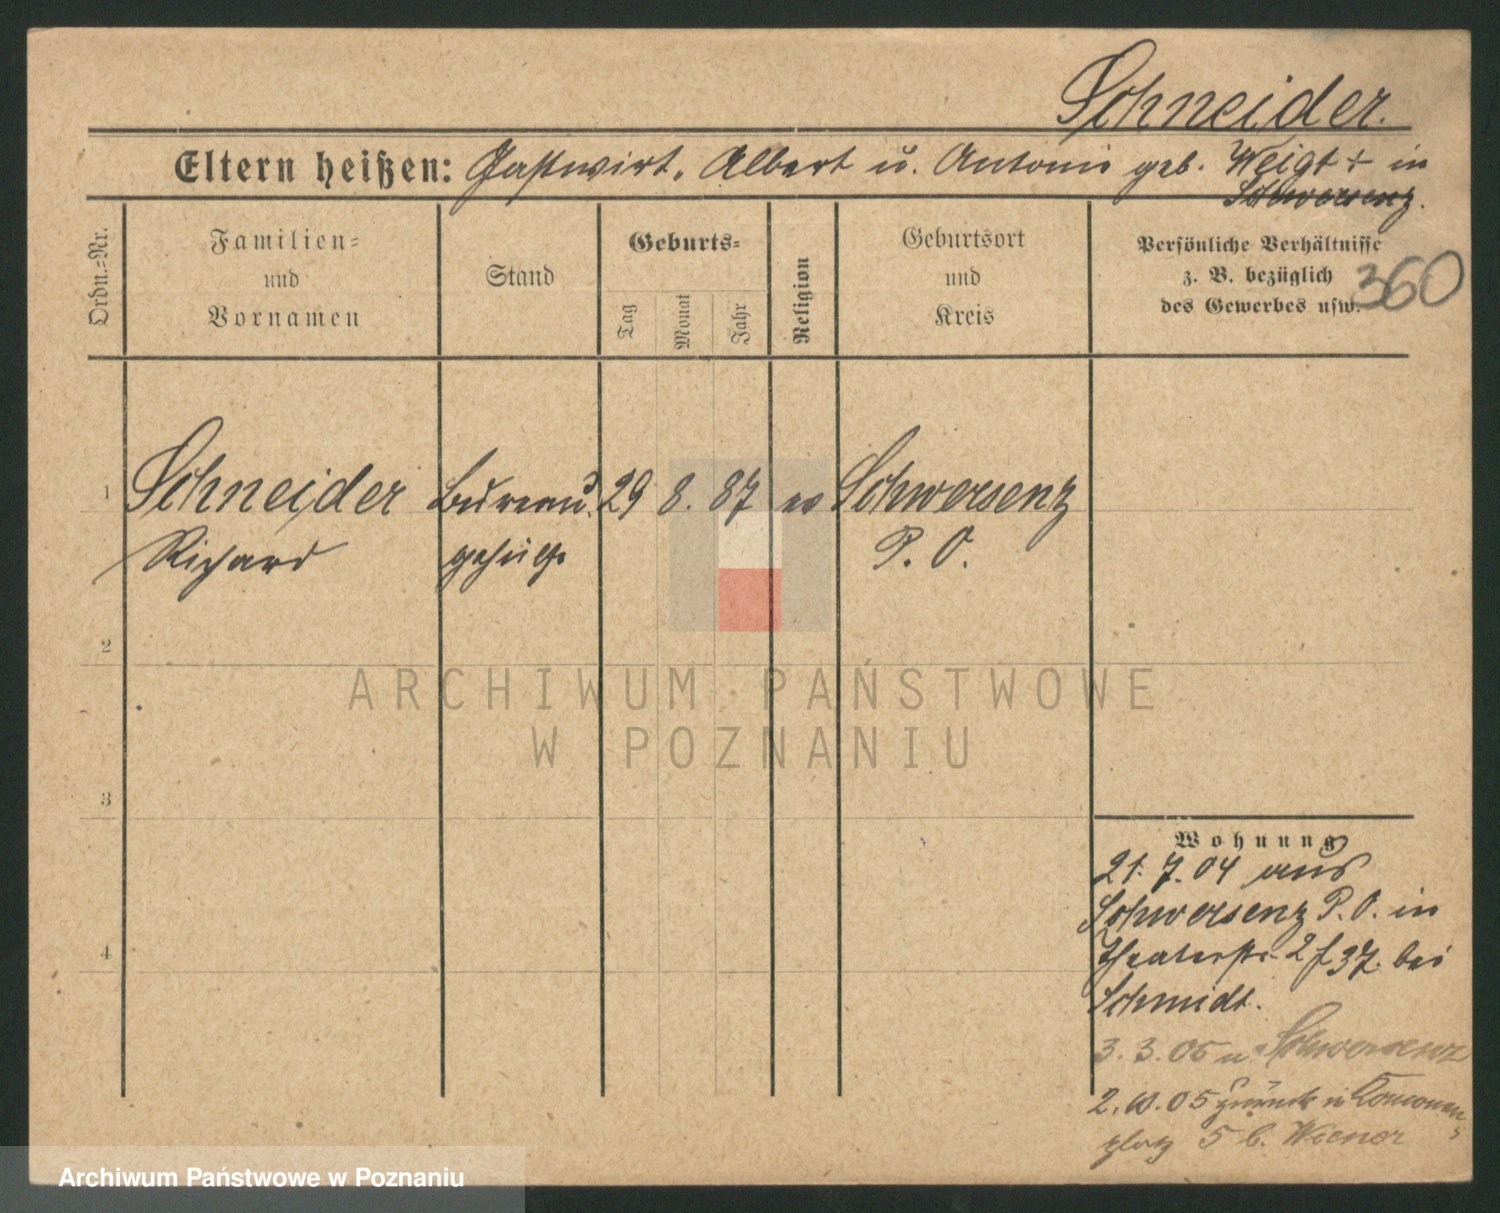 Schneider.
Eltern heißen: Gastwirt. Albert u. Antonie geb. Weigt + in
Schwersenz.
Ordn.-Nr.
Familien-
und
Vornamen
Stand
Geburts-
Tag
Monat
Jahr
Religion
Geburtsort
und
Kreis
Persönliche Verhältnisse
z. B. bezüglich
des Gewerbes usw.
360
1 Schneider Bureau 29 8. 87 ev Schwersenz
Richard gehülfe P. O.
2
ARCHIWUM PAŃSTWOWE
W POZNANIU
3
Wohnung
21. 7. 04 aus
Schwersenz P. O. in
4
Theaterstr. 2 f 37. bei
Schmidt.
3. 3. 05 n Schwersenz
2. 10. 05 zurück
platz 5 b. Wiener
Archiwum Państwowe w Poznaniu